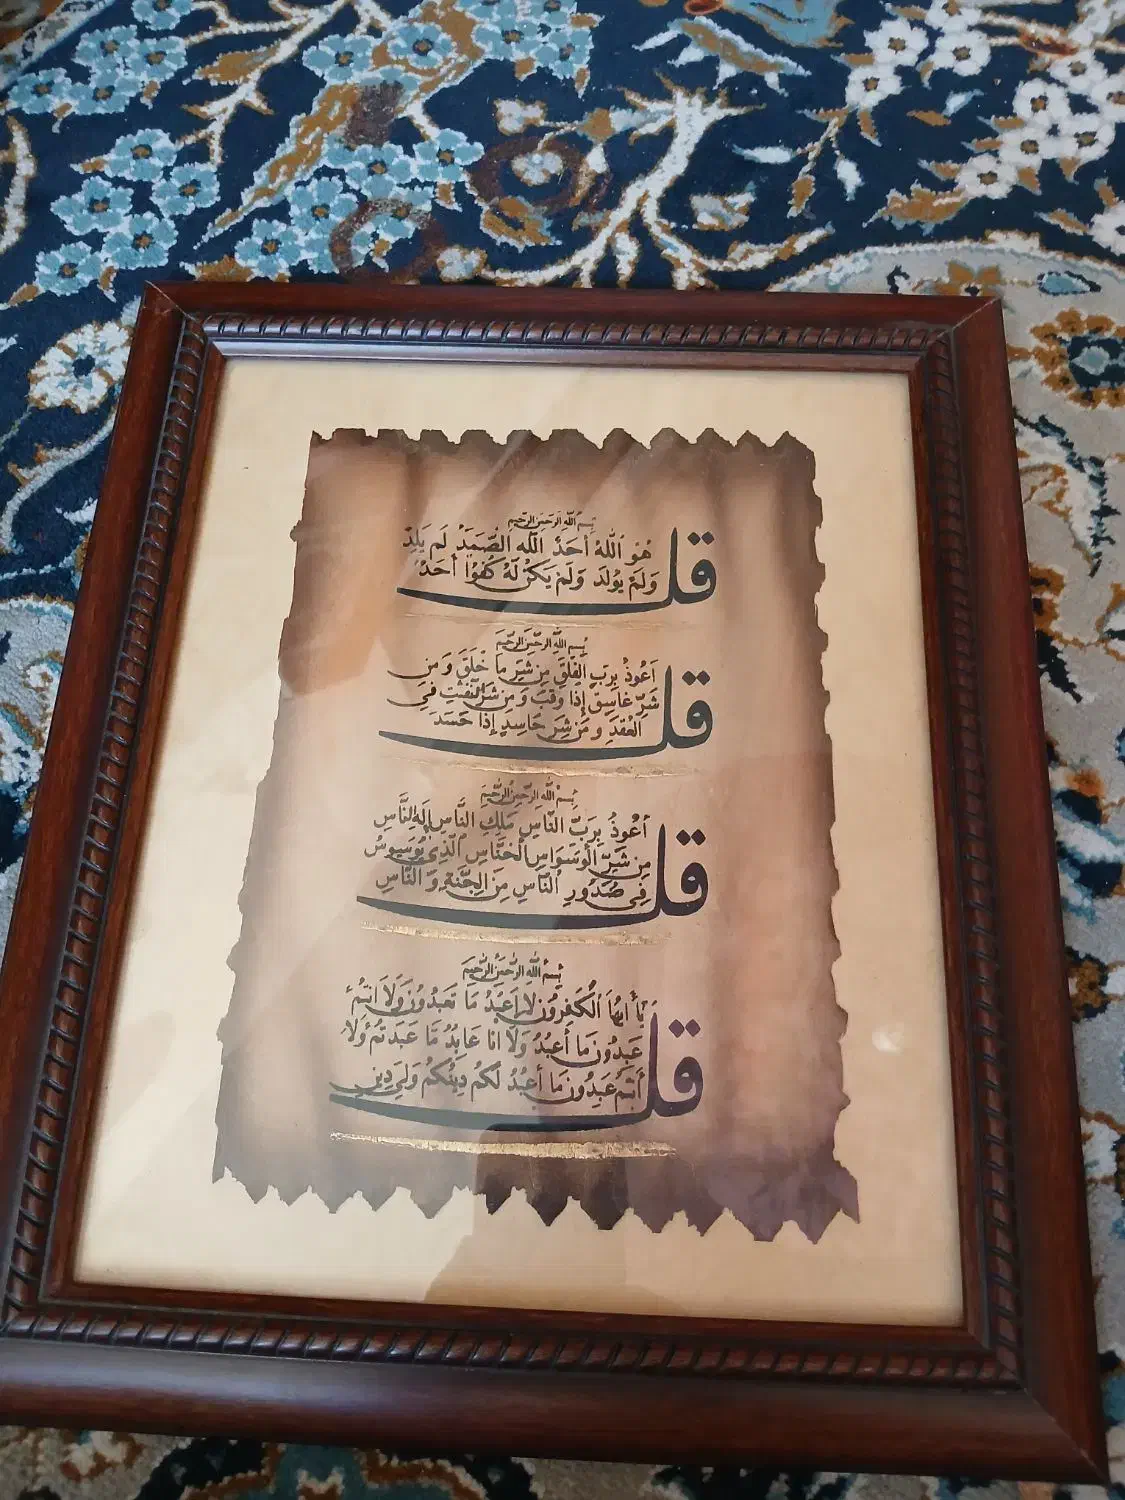 بسم الله الرحمن الرحيم
قل هُوَ اللهُ أَحَدٌ اللهُ الصَّمَدُ لَم يَلِدْ
وَلَمْ يُولَد وَلَمْ يَكُن لَهُ كُفُوًا أَحَدٌ
بسم الله الرحمن الرحيم
قل أَعُوذُ بِرَبِّ الفَلَقِ مِن شَرِّ مَا خَلَقَ وَمِن
شَرِّ غَاسِقٍ إِذَا وَقَبَ وَمِن شَرِّ النَّفّٰثٰتِ فِي
العُقَدِ وَمِن شَرِّ حَاسِدٍ إِذَا حَسَدَ
بسم الله الرحمن الرحيم
قل أَعُوذُ بِرَبِّ النَّاسِ مَلِكِ النَّاسِ إِلَهِ النَّاسِ
مِن شَرِّ الْوَسْوَاسِ الْخَنَّاسِ الَّذِي يُوَسْوِسُ
فِي صُدُورِ النَّاسِ مِنَ الْجِنَّةِ وَالنَّاسِ
بسم الله الرحمن الرحيم
قل يَا أَيُّهَا الْكَفِرُونَ لَا أَعْبُدُ مَا تَعْبُدُونَ وَلَا أَنتُمْ
عَبِدُونَ مَا أَعْبُدُ وَلَا أَنَا عَابِدٌ مَّا عَبَدتُمْ وَلَا
أَنتُمْ عَبِدُونَ مَا أَعْبُدُ لَكُمْ دِينُكُمْ وَلِيَ دِينِ